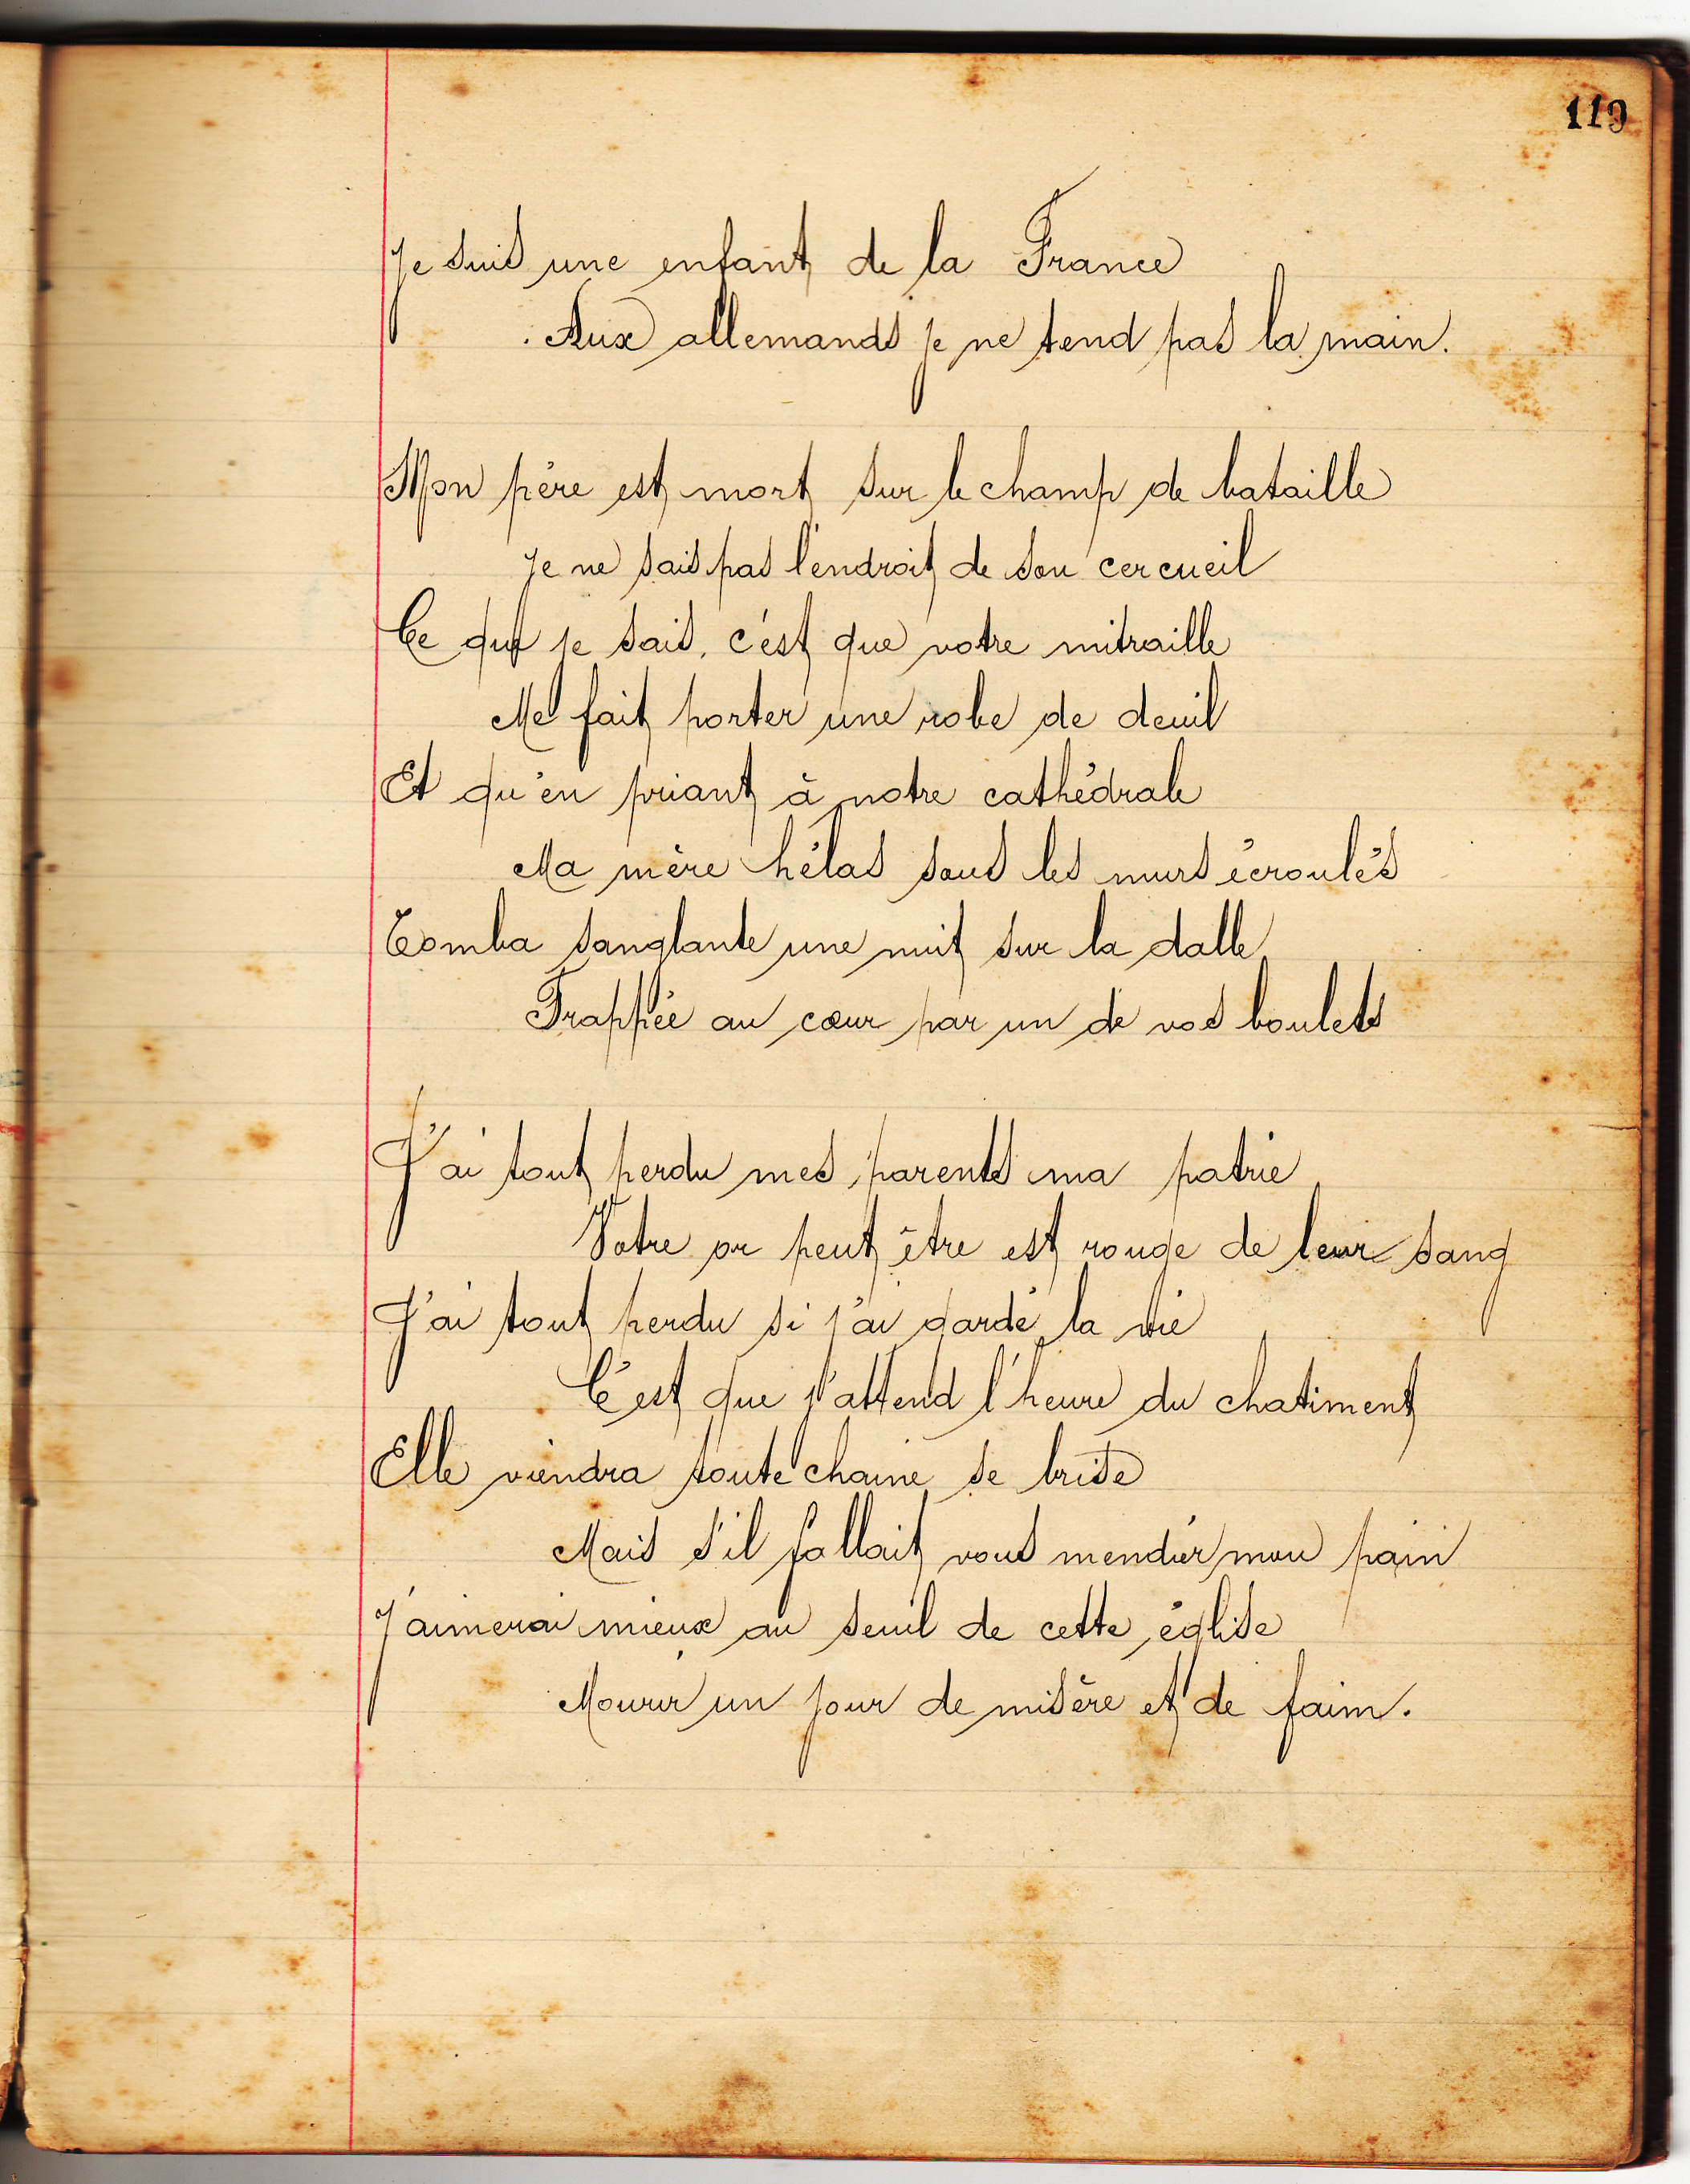 119
Je suis une enfant de la France
Aux allemands je ne tend pas la main.
Mon père est mort sur le champ de bataille
Je ne sais pas l'endroit de son cercueil
Ce que je sais, c'est que votre mitraille
Me fait porter une robe de deuil
Et qu'en priant à notre cathédrale
Ma mère hélas sous les murs écroulés
Tomba sanglante une nuit sur la dalle
Frappée au cœur par un de vos boulets
J'ai tout perdu mes parents ma patrie
Votre or peut être est rouge de leur sang
J'ai tout perdu si j'ai gardé la vie
C'est que j'attend l'heure du chatiment
Elle viendra toute chaine se brise
Mais s'il fallait vous mendier mon pain
J'aimerai mieux au seuil de cette église
Mourir un jour de misère et de faim.